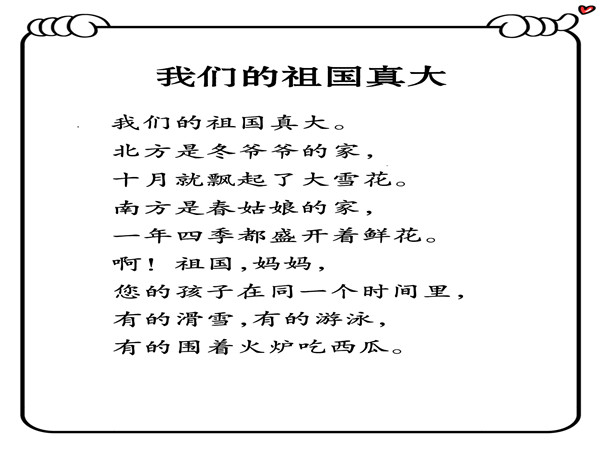 我们的祖国真大
我们的祖国真大。
北方是冬爷爷的家，
十月就飘起了大雪花。
南方是春姑娘的家，
一年四季都盛开着鲜花。
啊！祖国，妈妈，
您的孩子在同一个时间里，
有的滑雪，有的游泳，
有的围着火炉吃西瓜。